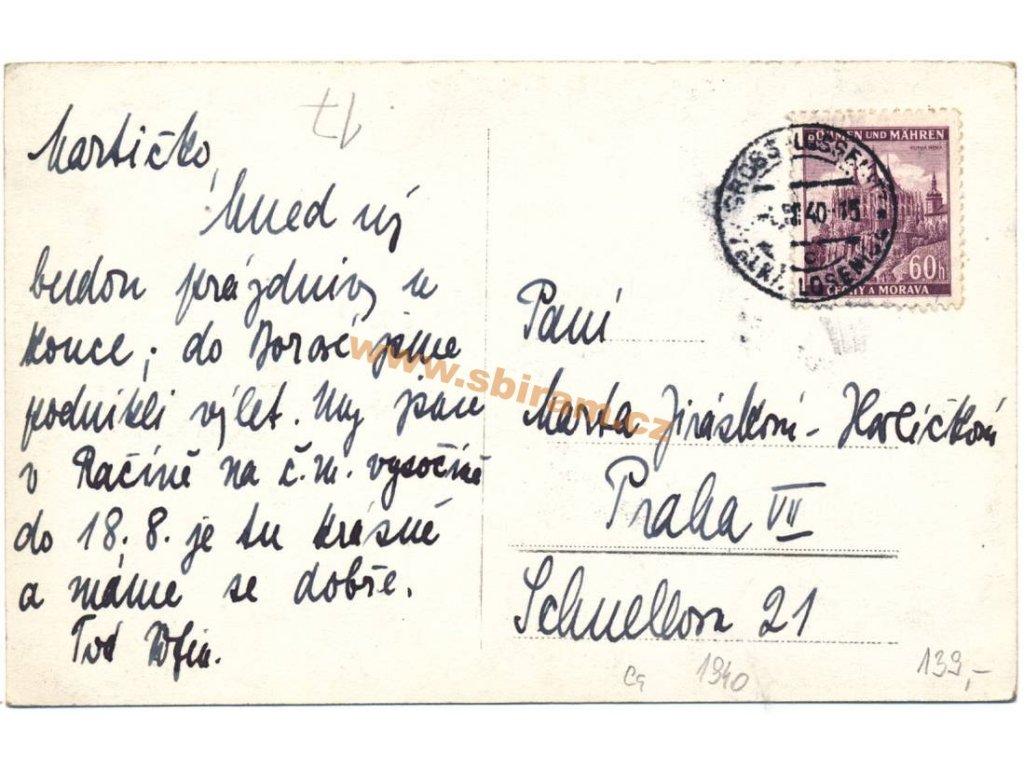 17
Martičko,
hned už
budou prázdniny u
konce; do Borové jsme
podnikli výlet. My jsme
v Račíně na č.m. vysočině
do 18. 8. je tu krásně
a máme se dobře.
BÖHMEN UND MÄHREN
60h
ČECHY A MORAVA
GROSS LOSSENITZ
40-15
VELKÁ LOSENICE
Paní
Marta Jirásková-Horličková
Praha VII
Schnellova 21
ca 1940
139,-
www.sbiram.cz